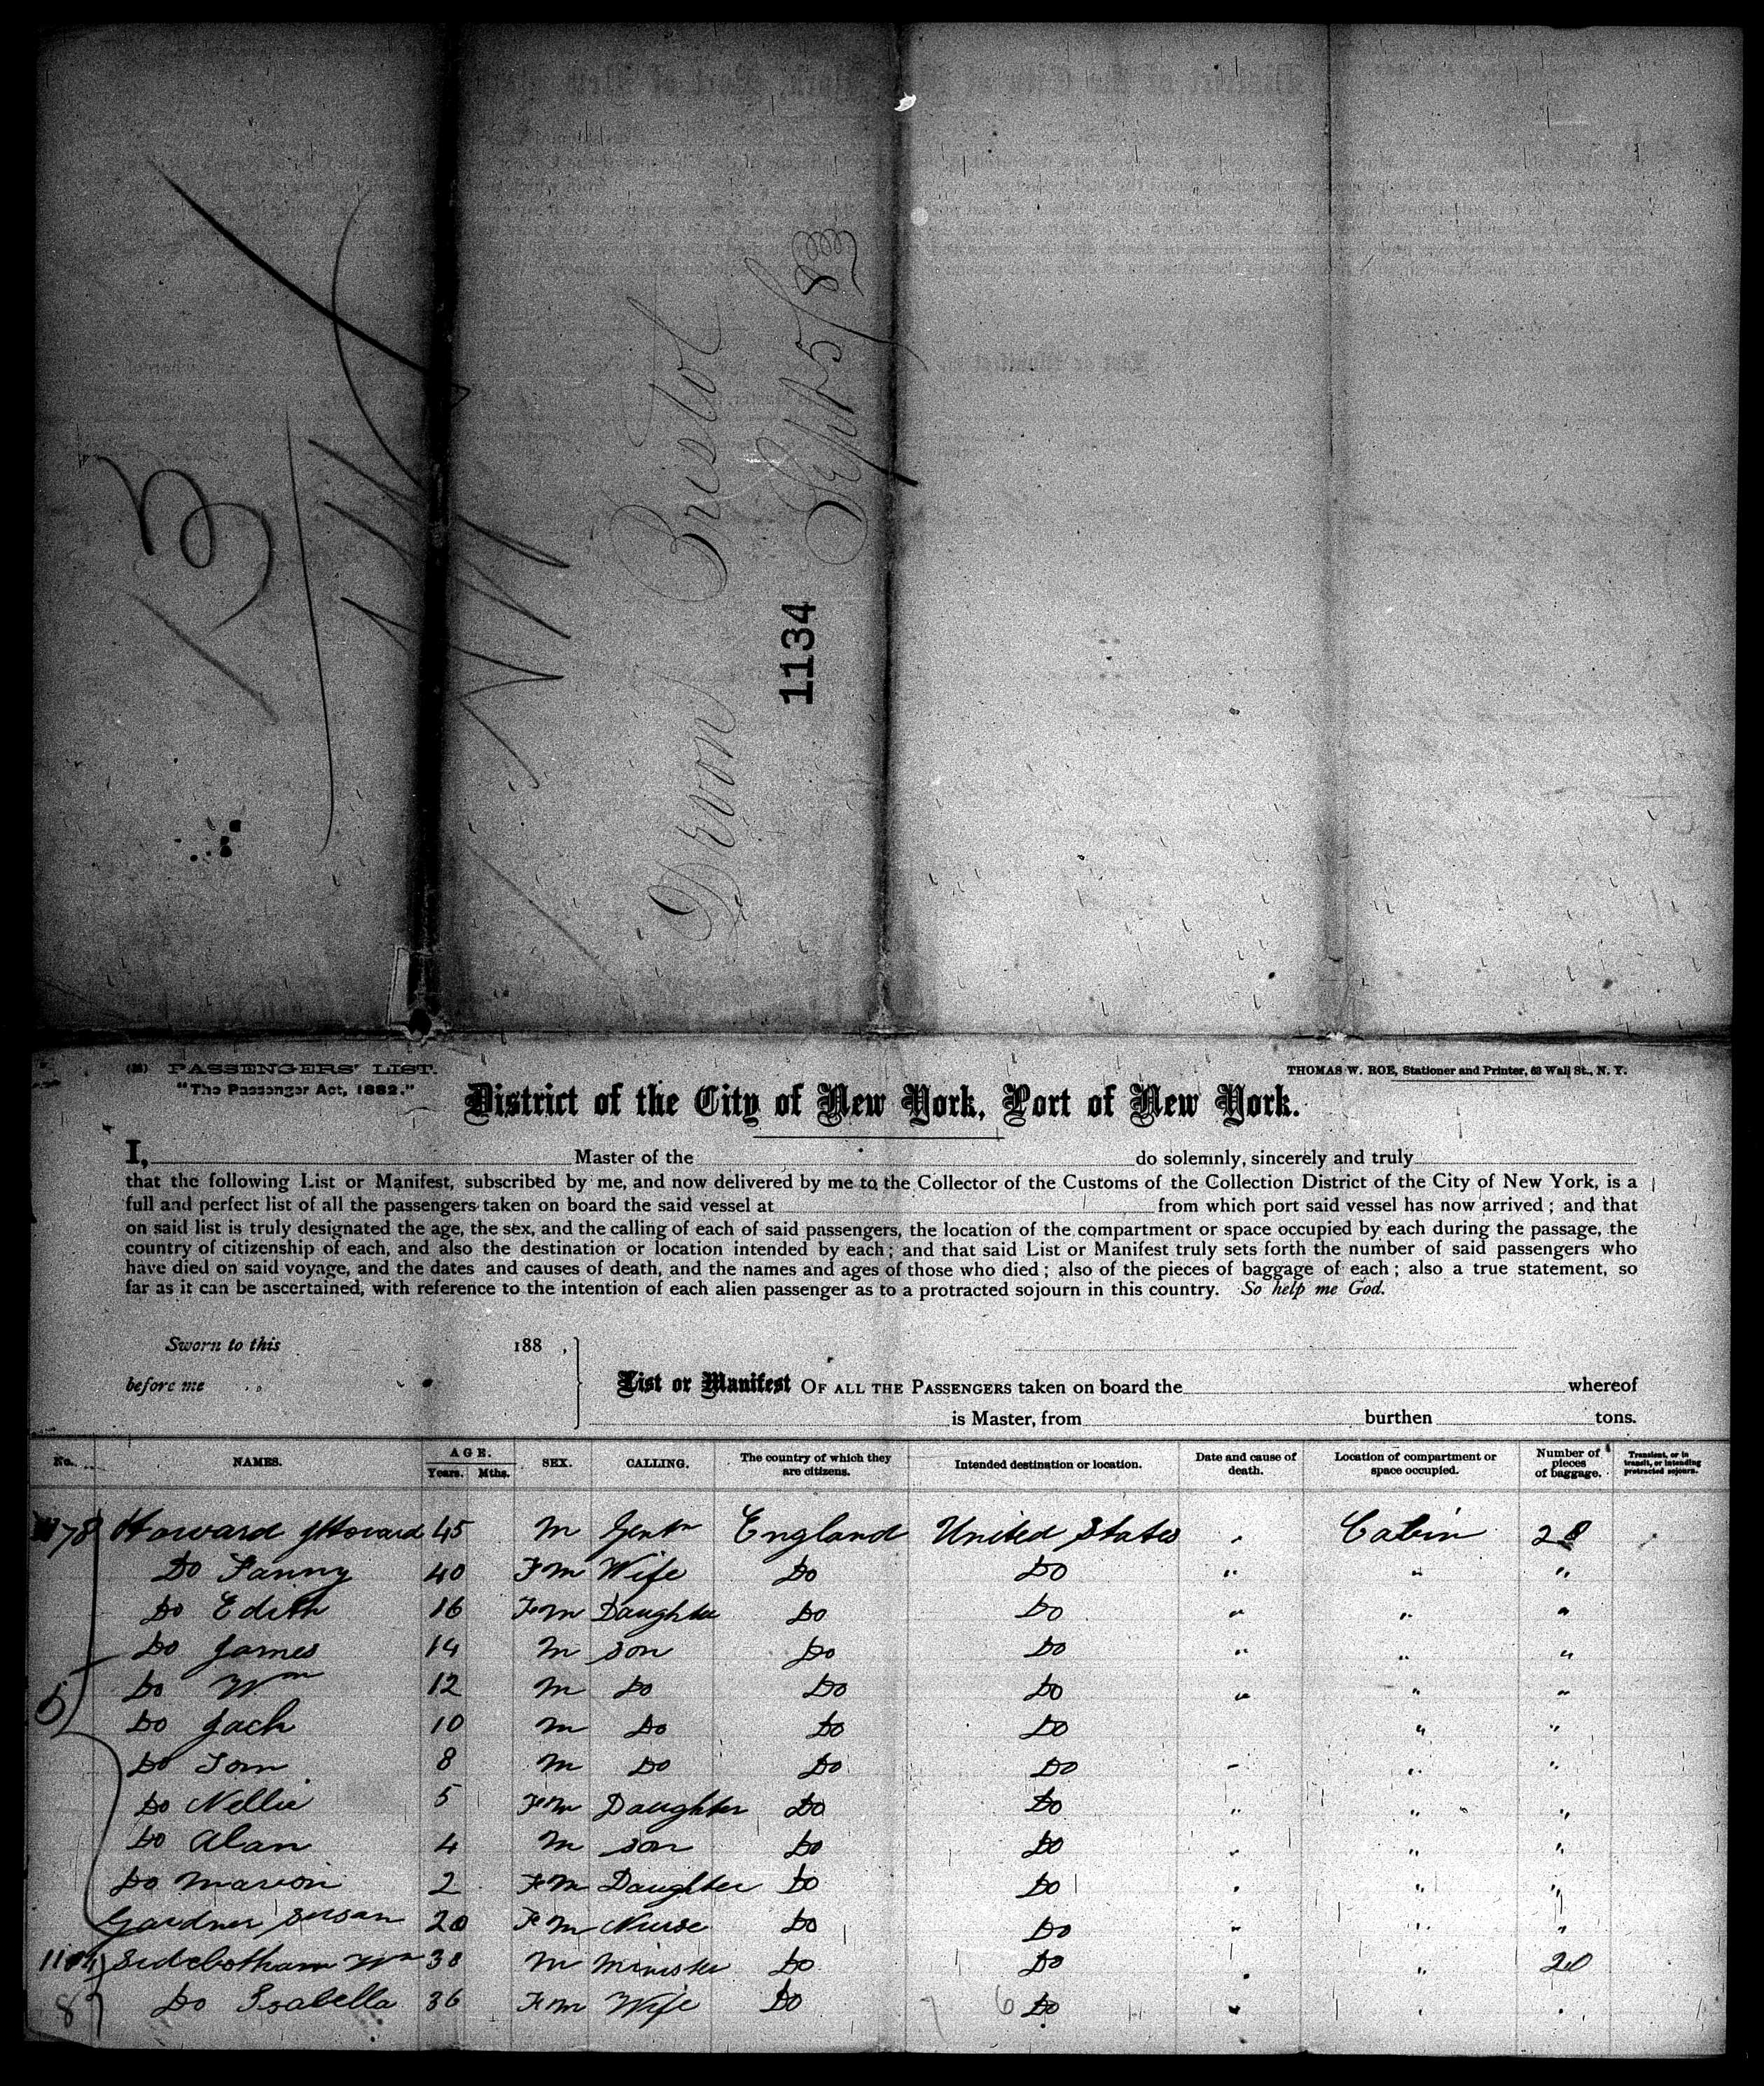 13
Devon Bristol
Sept 5/83
1134
PASSENGERS' LIST.
"The Passenger Act, 1882."
THOMAS W. ROE, Stationer and Printer, 63 Wall St., N. Y.
District of the City of New York, Port of New York.
I, Master of the do solemnly, sincerely and truly
that the following List or Manifest, subscribed by me, and now delivered by me to the Collector of the Customs of the Collection District of the City of New York, is a
full and perfect list of all the passengers taken on board the said vessel at from which port said vessel has now arrived; and that
on said list is truly designated the age, the sex, and the calling of each of said passengers, the location of the compartment or space occupied by each during the passage, the
country of citizenship of each, and also the destination or location intended by each; and that said List or Manifest truly sets forth the number of said passengers who
have died on said voyage, and the dates and causes of death, and the names and ages of those who died; also of the pieces of baggage of each; also a true statement, so
far as it can be ascertained, with reference to the intention of each alien passenger as to a protracted sojourn in this country. So help me God.
Sworn to this 188 ,
before me
List or Manifest OF ALL THE PASSENGERS taken on board the whereof
is Master, from burthen tons.
No. NAMES. AGE. Years. Mths. SEX. CALLING. The country of which they are citizens. Intended destination or location. Date and cause of death. Location of compartment or space occupied. Number of pieces of baggage. Transient, or in transit, or intending protracted sojourn.
78 Howard Howard 45 M Gentn England United States " Cabin 28
Do Fanny 40 Fm Wife Do Do " " "
Do Edith 16 Fm Daughter Do Do " " "
Do James 14 M son Do Do " " "
Do Wm 12 M Do Do Do " " "
Do Jack 10 M Do Do Do " "
Do Tom 8 M Do Do Do " " "
Do Nellie 5 Fm Daughter Do Do " " "
Do Alan 4 M son Do Do " " "
Do Marion 2 Fm Daughter Do Do " " "
Gardner Susan 20 Fm Nurse Do Do " " "
Sidebotham Wm 38 M Minister Do Do " " 20
8 Do Isabella 36 Fm Wife Do 6 Do " " "